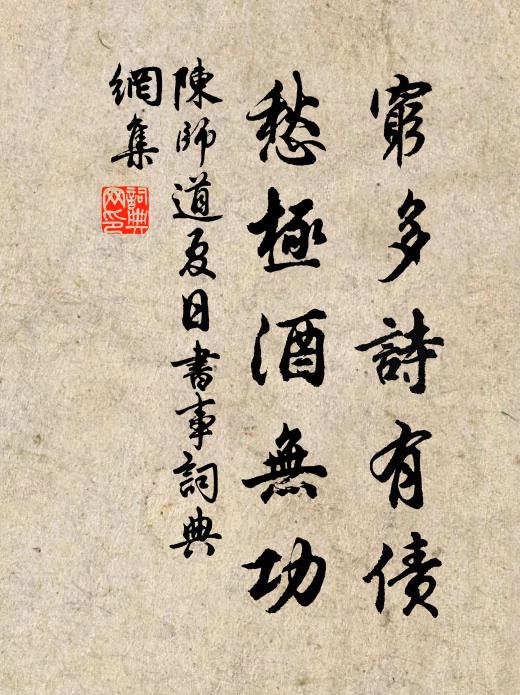 窮多詩有債
愁極酒無功
陳師道夏日書事詞典
網集
詞典網印